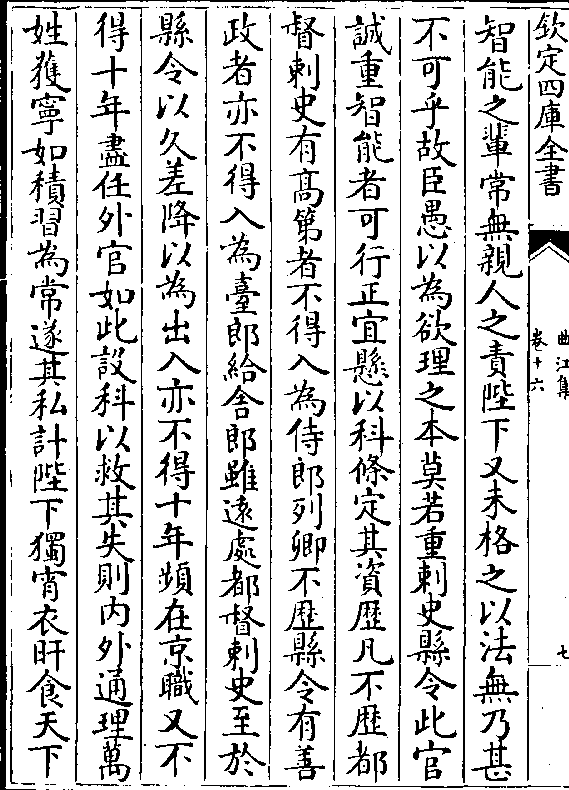 欽定四庫全書
曲江集
卷十六
七
智能之輩常無親人之責陛下又未格之以法無乃甚
不可乎故臣愚以為欲理之本莫若重刺史縣令此官
誠重智能者可行正宜懸以科條定其資歴凡不歴都
督刺史有髙第者不得入為侍郎列卿不歴縣令有善
政者亦不得入為臺郎給舍郎雖逺處都督刺史至於
縣令以久差降以為出入亦不得十年頻在京職又不
得十年盡任外官如此設科以救其失則内外通理萬
姓獲寧如積習為常遂其私計陛下獨宵衣旰食天下